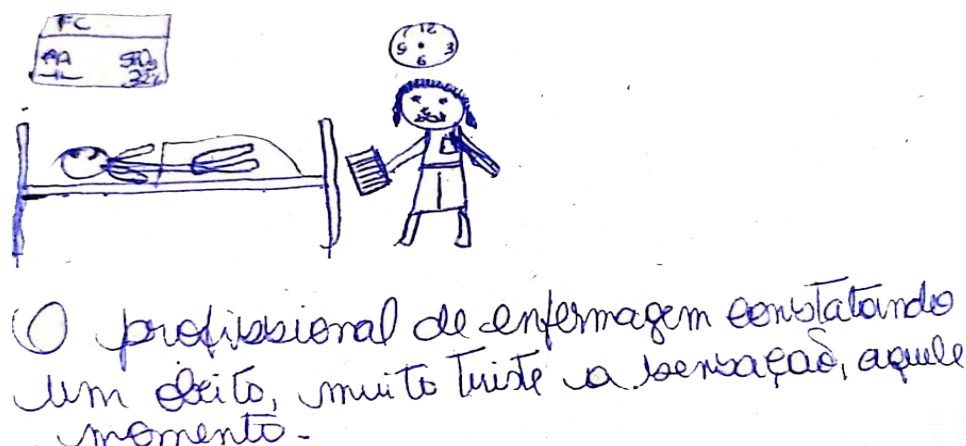 FC
PA SPO2
32%
12
9 3
6
O profissional de enfermagem constatando
um óbito, muito triste a sensação, aquele
momento.